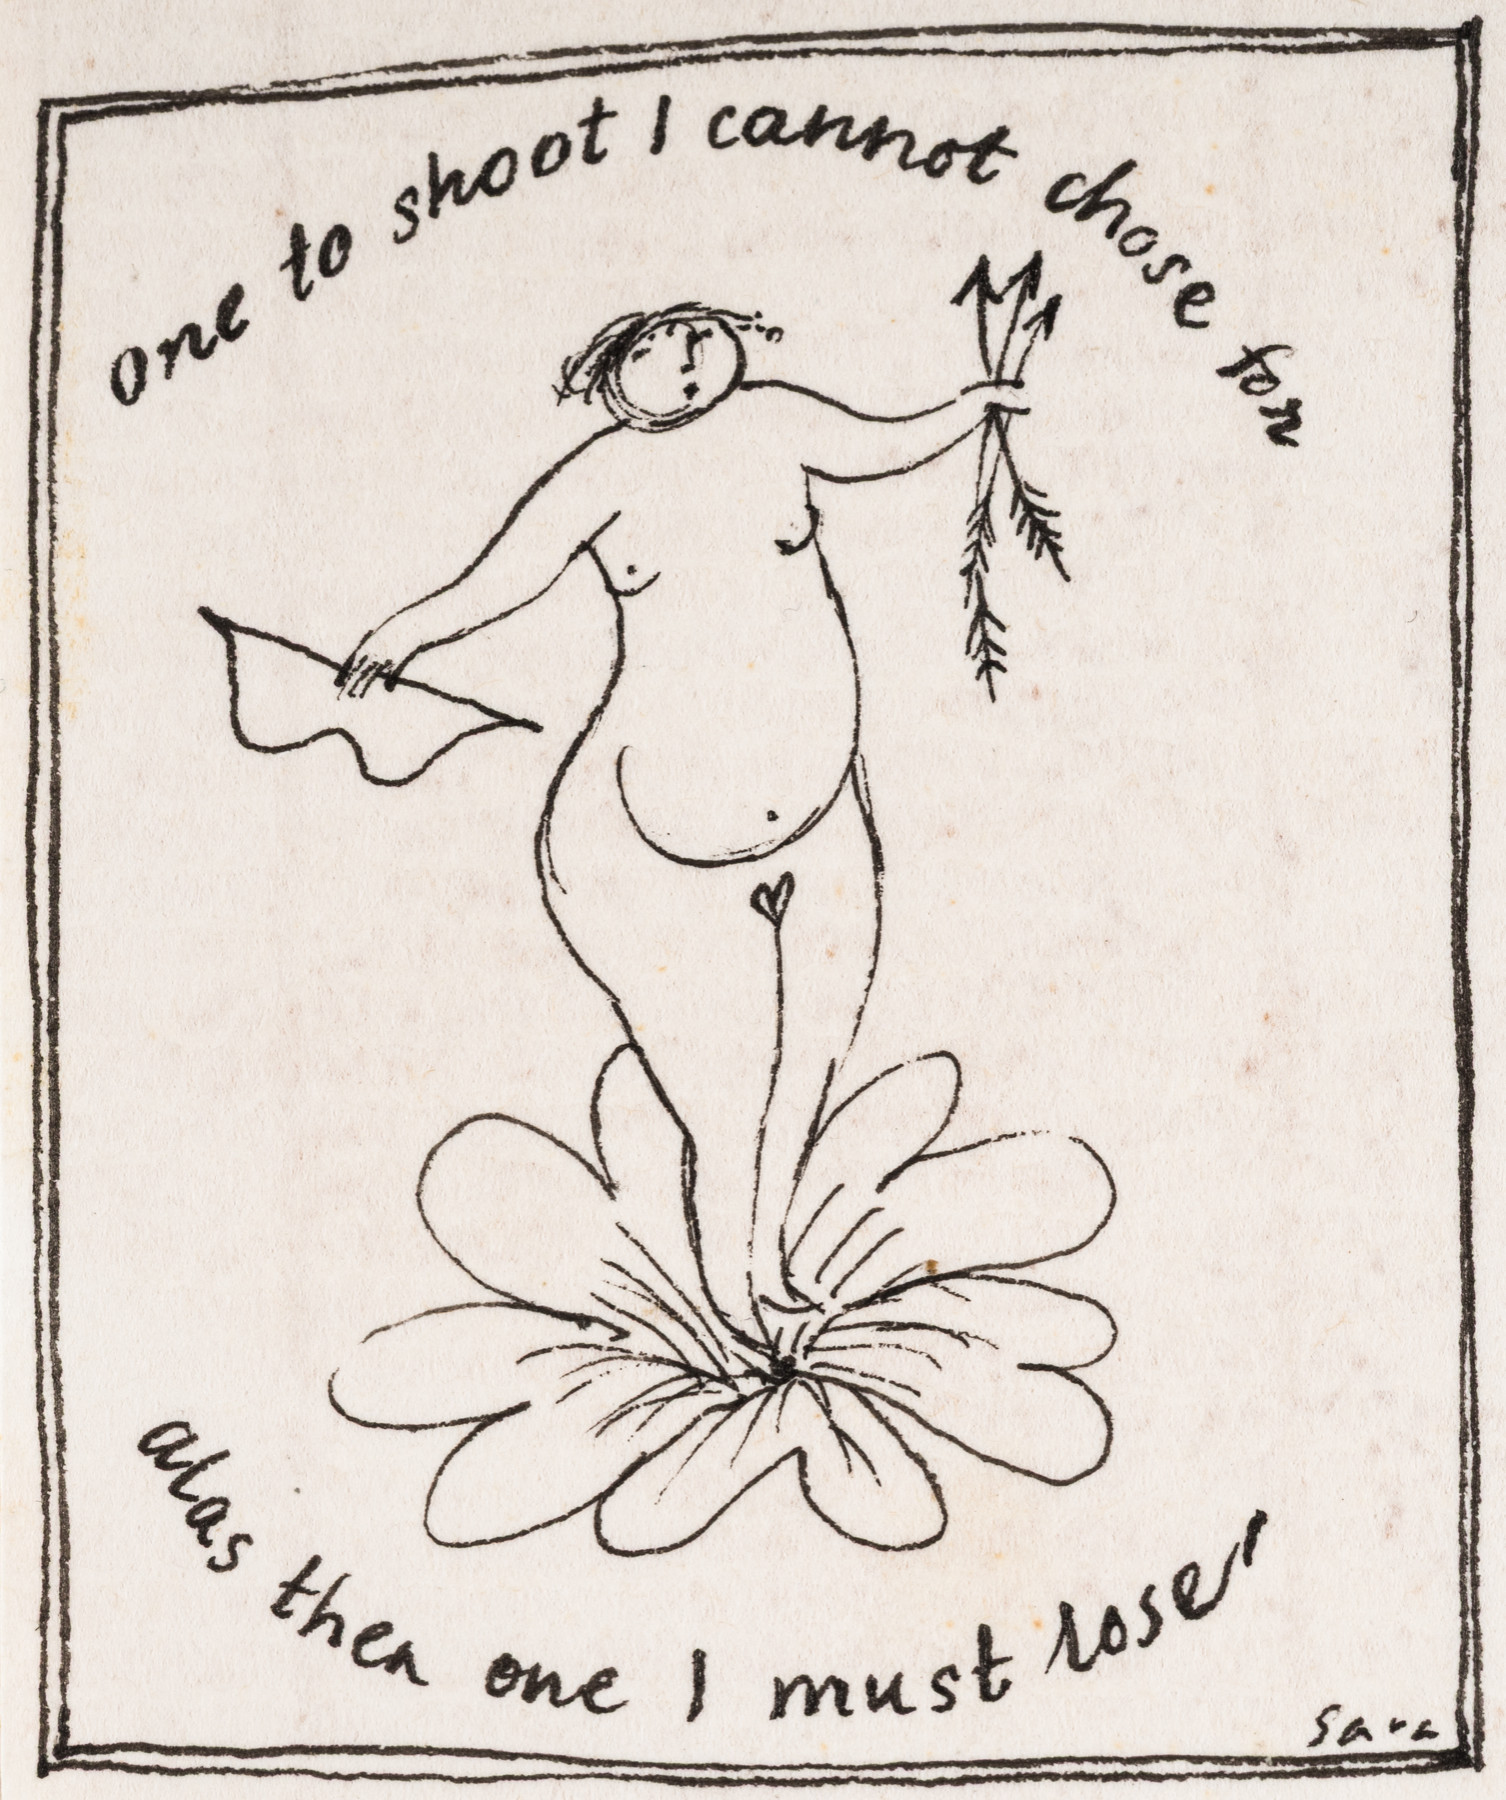 one to shoot I cannot chose for
alas then one I must lose!
Sara